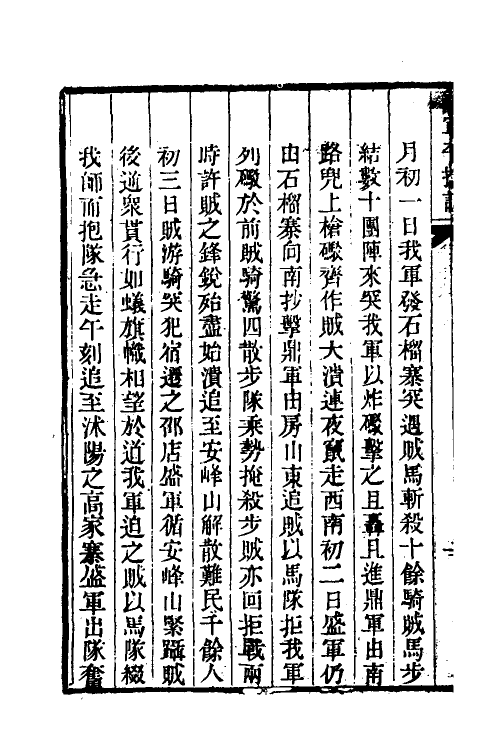 月初一日我軍發石榴寨突遇賊馬斬殺十餘騎賊馬步
結數十團陣來突我軍以炸礮擊之且轟且進鼎軍由南
路兜上槍礮齊作賊大潰連夜竄走西南初二日盛軍仍
由石榴寨向南抄擊鼎軍由房山東追賊以馬隊拒我軍
列礮於前賊騎驚四散步隊乘勢掩殺步賊亦回拒戰兩
時許賊之鋒銳殆盡始潰追至安峰山解散難民千餘人
初三日賊游騎突犯宿遷之邵店盛軍循安峰山緊躡賊
後逆衆貫行如蟻旗幟相望於道我軍追之賊以馬隊綴
我師而抱隊急走午刻追至沭陽之高家寨盛軍出隊奮